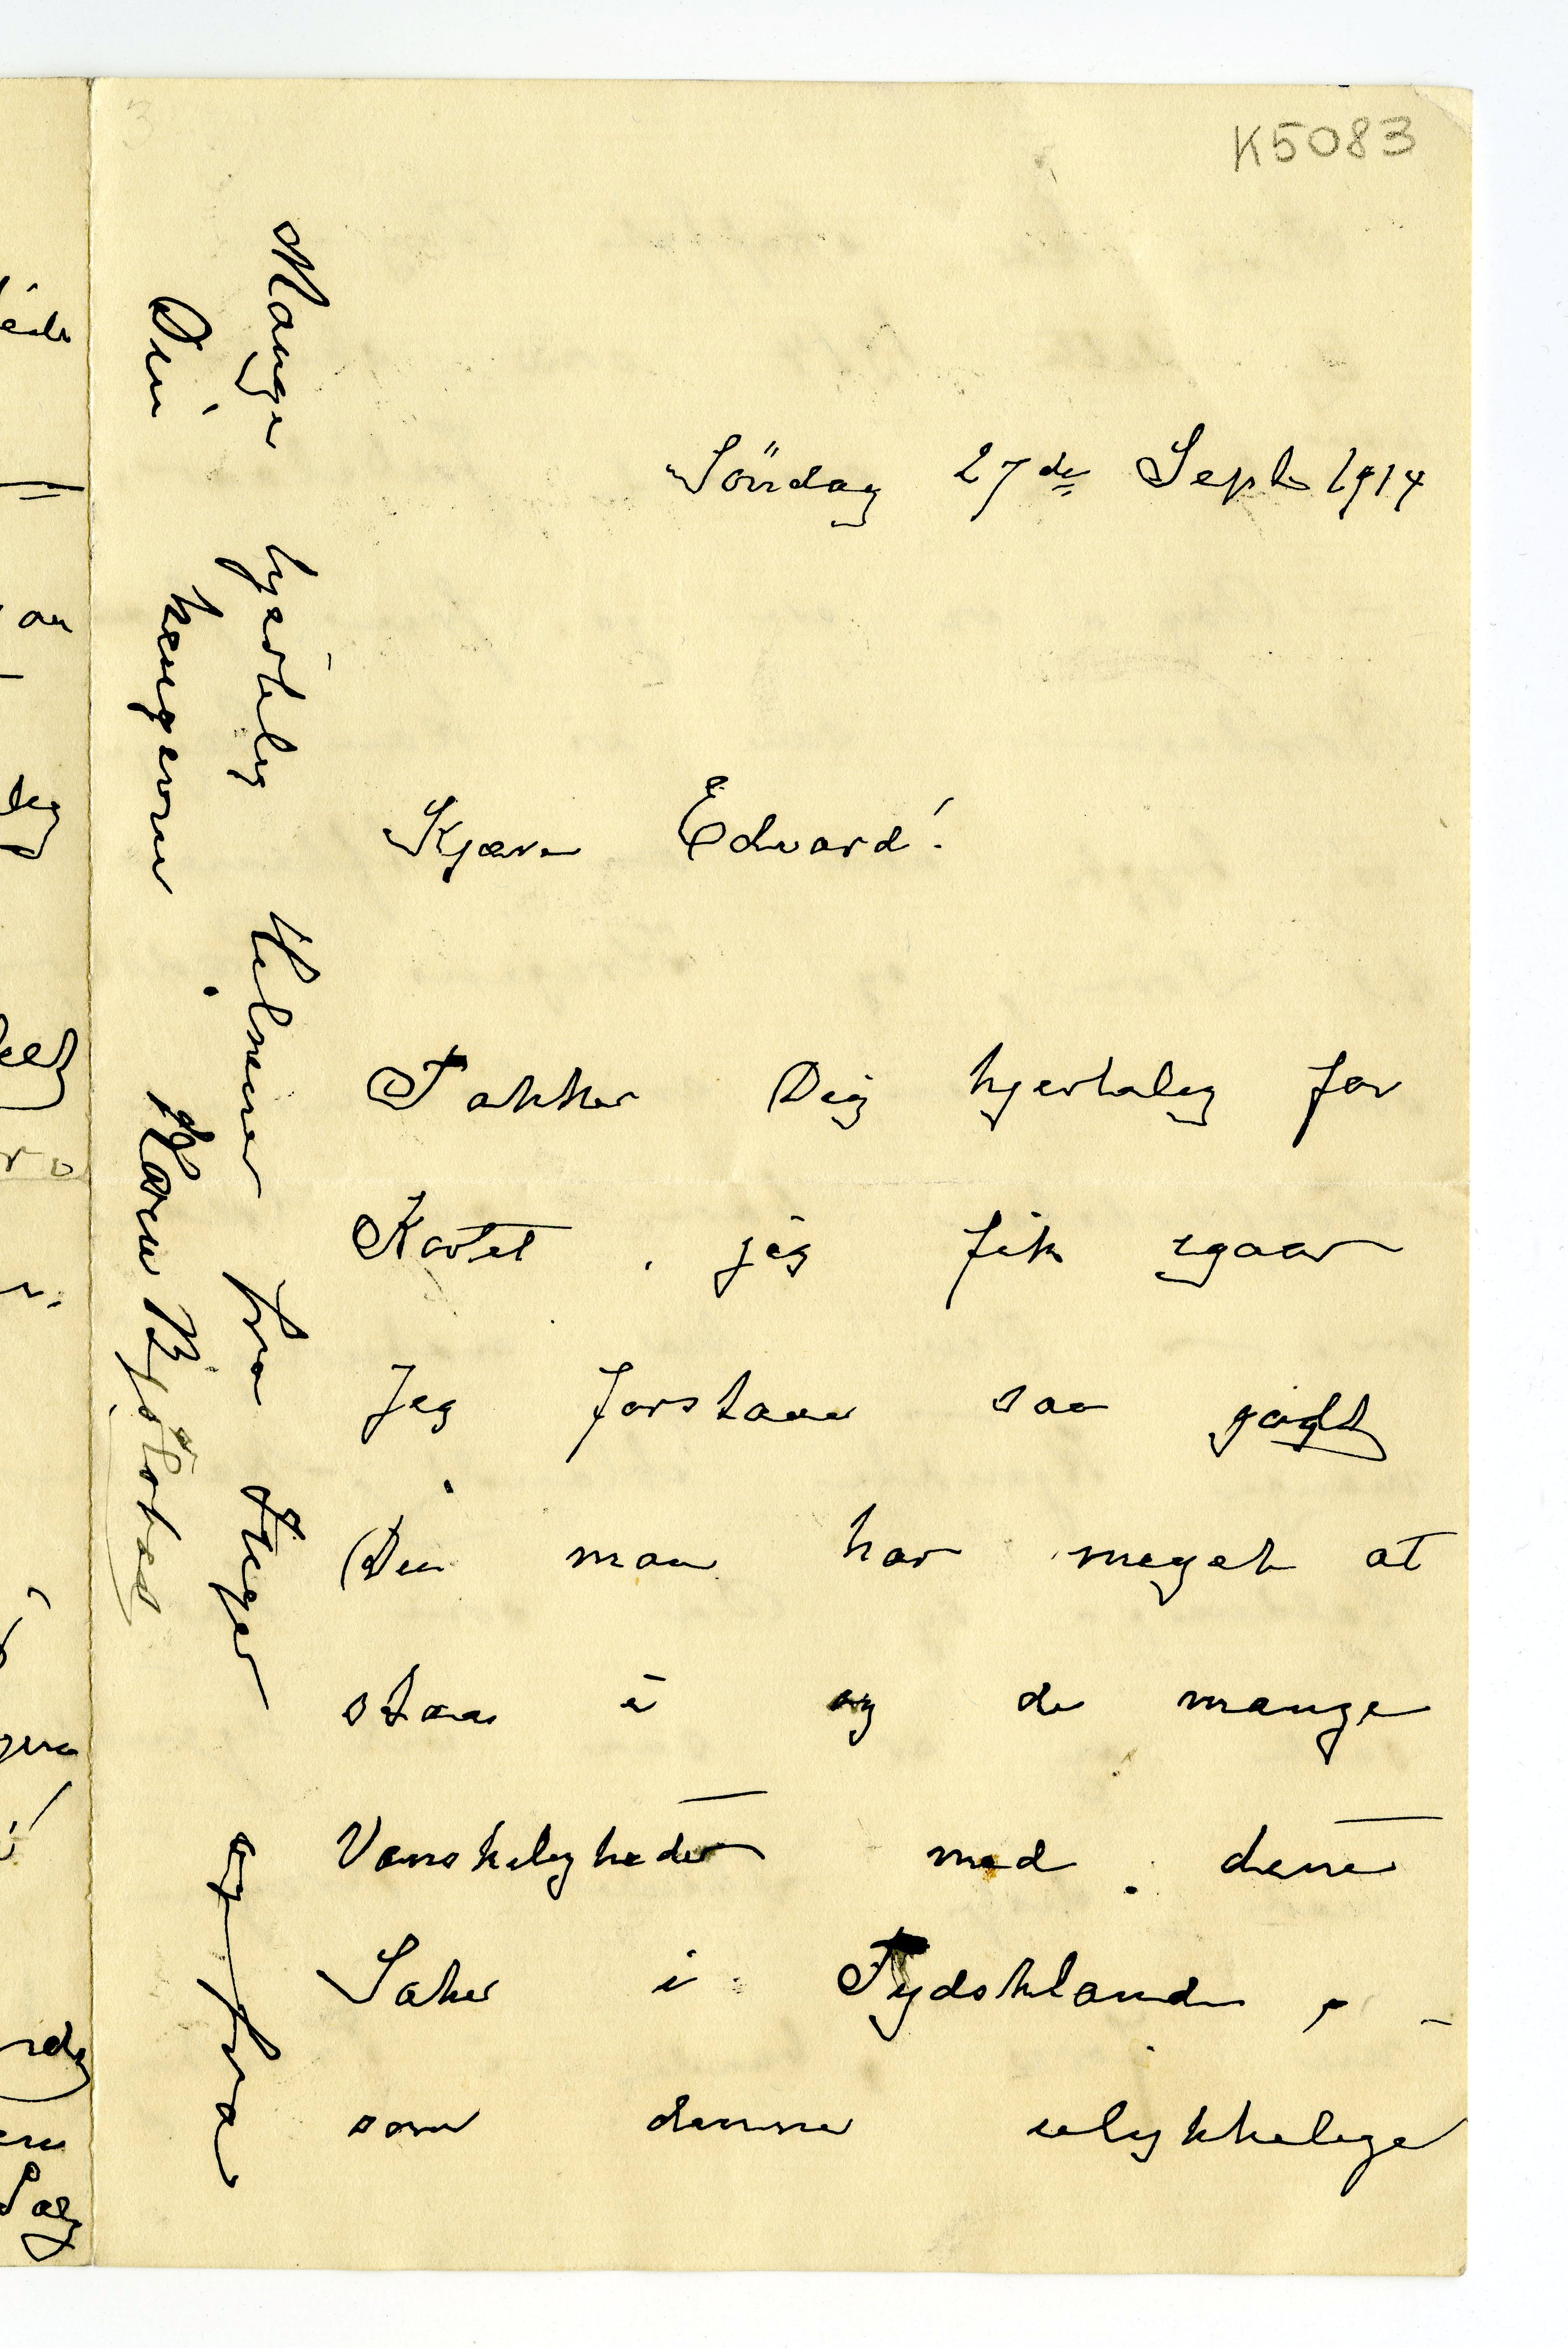 K5083
Söndag 27de Sept 1914
Kjære Edvard!
Takker Dig hjertelig for
Kortet, jeg fik igaar
Jeg forstaar saa godt
Du maa har meget at
staa i og de mange
Vanskeligheder med dine
Saker i Tydskland, -
som denne ulykkelige
Mange hjertelig Hilsener fra Inger og fra
Din hengivne Karen Bjølstad